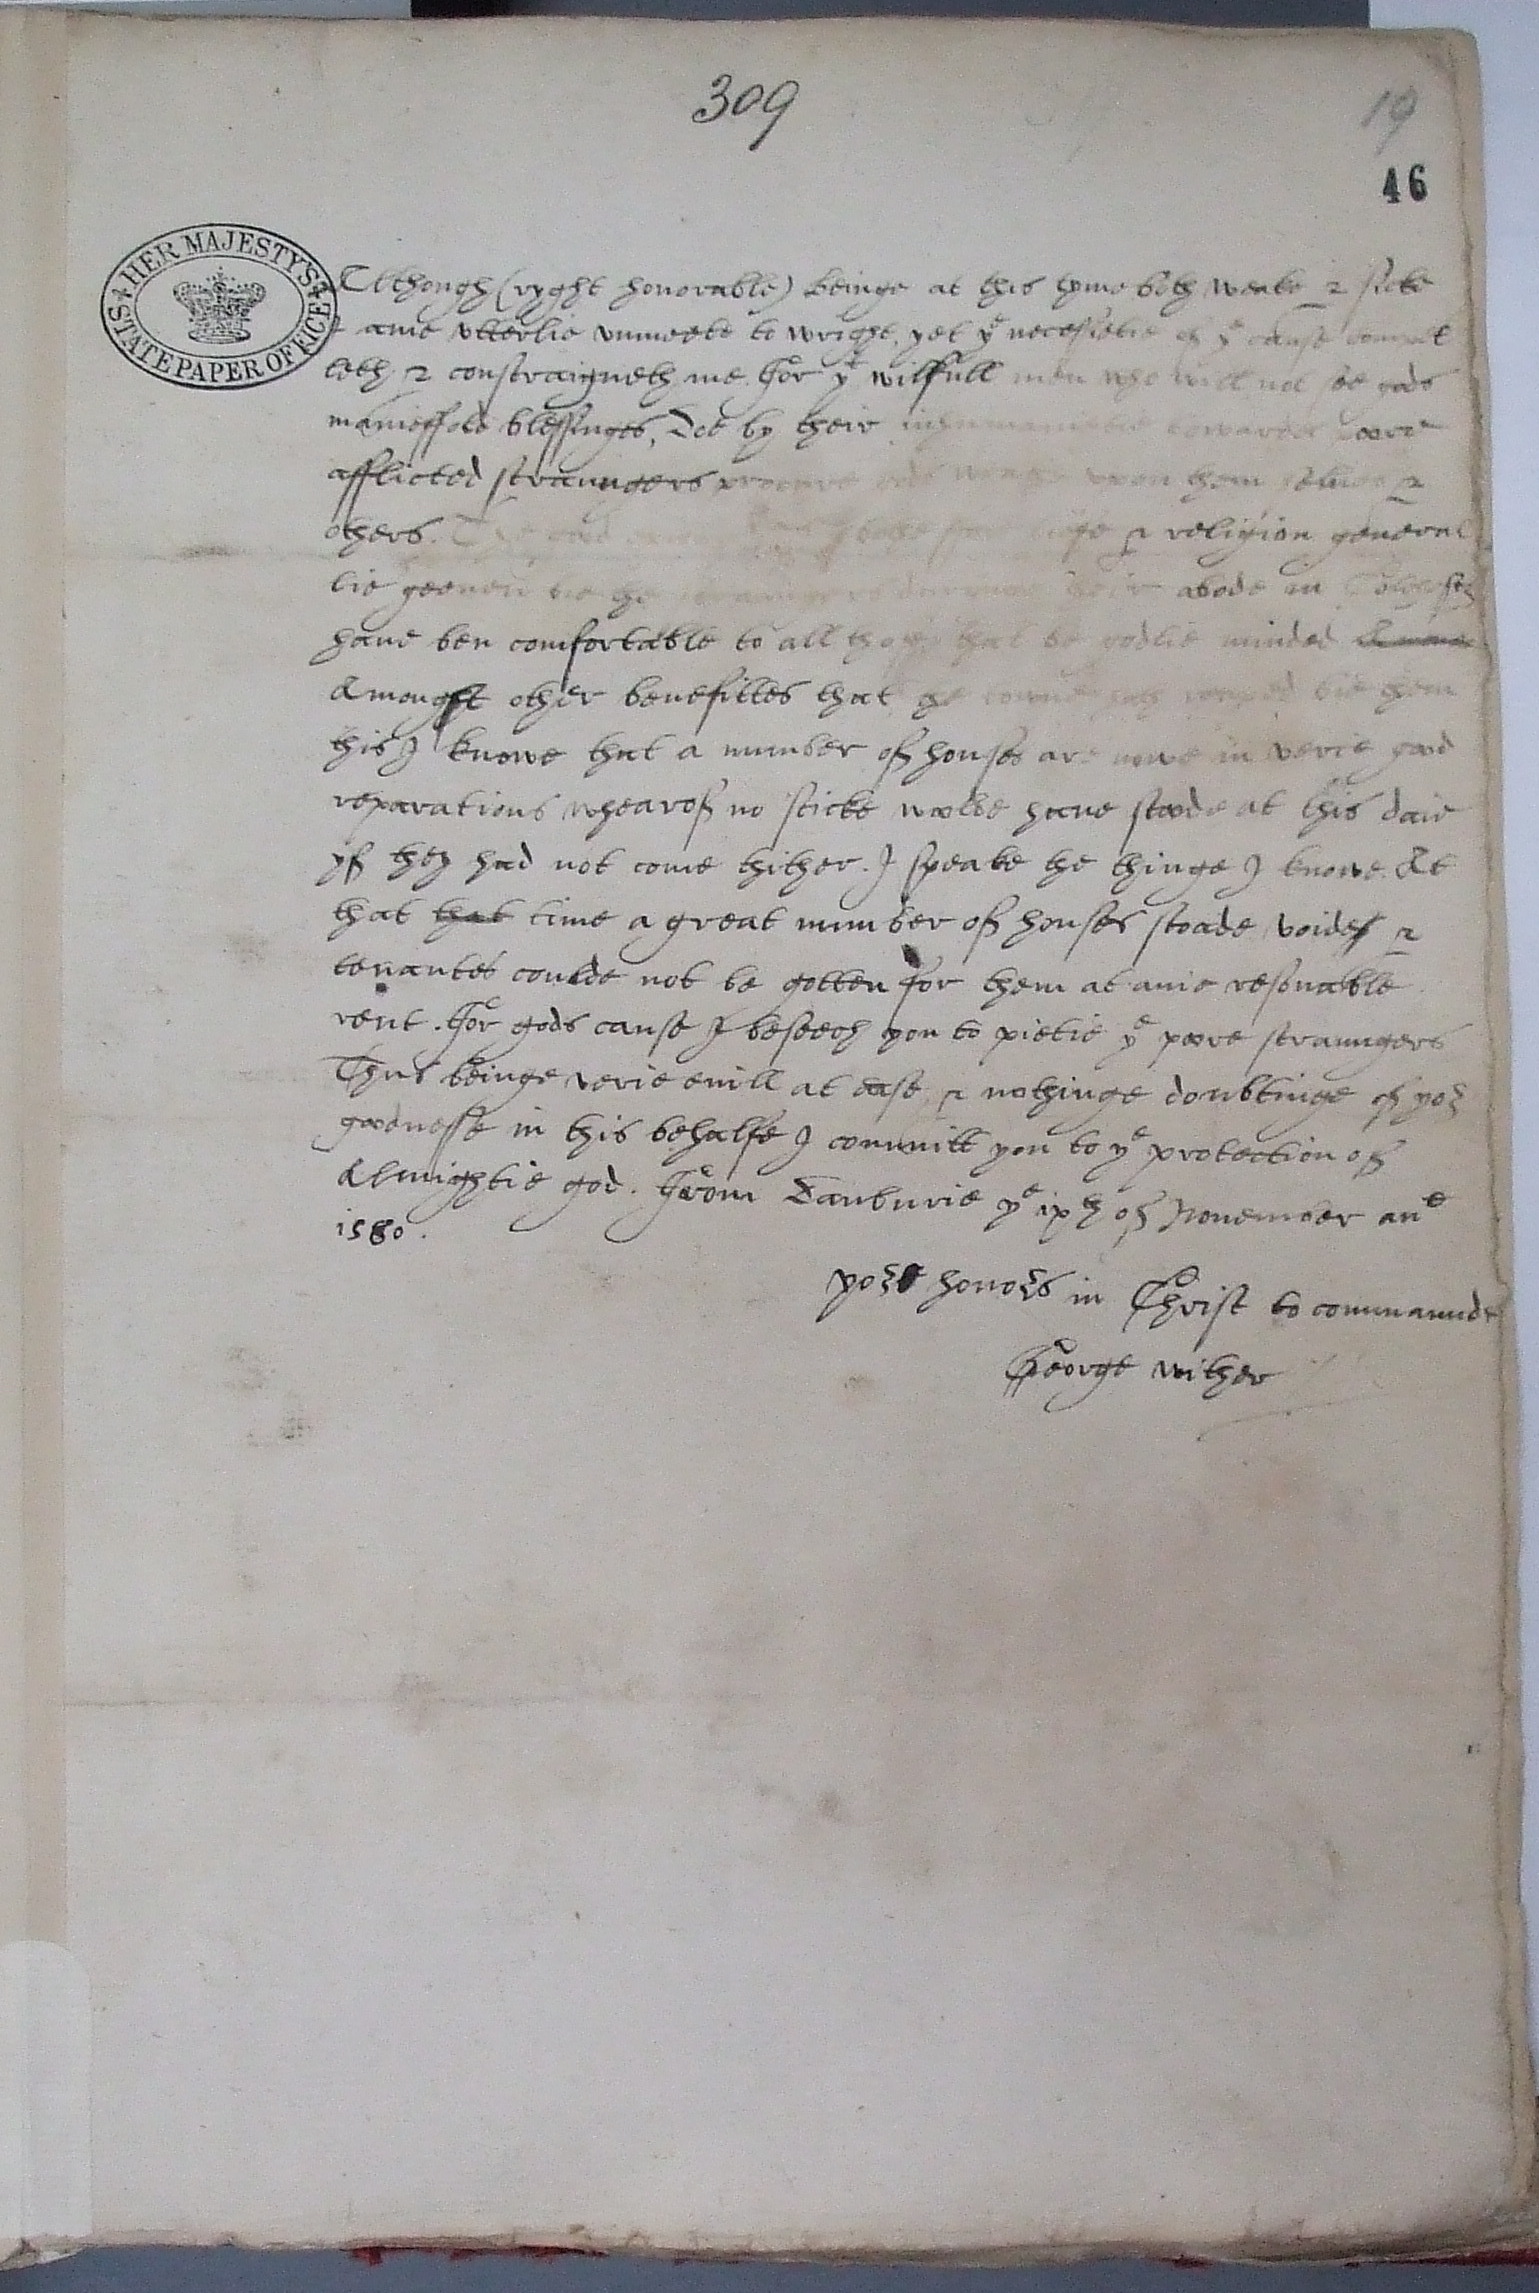 309
19
46
HER MAJESTY'S
STATE PAPER OFFICE
Although (ryght honorable) beinge at this tyme both weake & sicke
I ame vtterlie vnmeete to wright, yet yͤ necessitie of yͤ cause compel
leth & constraigneth me. For yͤ wilfull men who will not see gods
manieffold blessinges, Doe by their inhumanitie towardes poore
afflicted straungers procure gods wrath vpon them selues &
others. The good & religion general
lie geeuen bie the straungers duringe their abode in Colchestr
haue ben comfortable to all those that be godlie minded
Amongst other benefittes that the towne hath reaped bie them
this I knowe that a number of houses are nowe in verie good
reparations whearof no sticke woolde haue stoode at this daie
yf they had not come thither. I speake the thinge I knowe. At
that that time a great number of houses stoade voide &
tenantes coulde not be gotten for them at anie resonable
rent. For gods cause I beseech you to pietie yͤ poore straungers
Thus beinge verie euill at ease, & nothinge doubtinge of yor
goodnesse in this behalfe I committ you to yͤ protection of
Almightie god. From Danburie yͤ ixth of Nouember anͤ
1580.
yor honors in Christ to commaunde
George wither